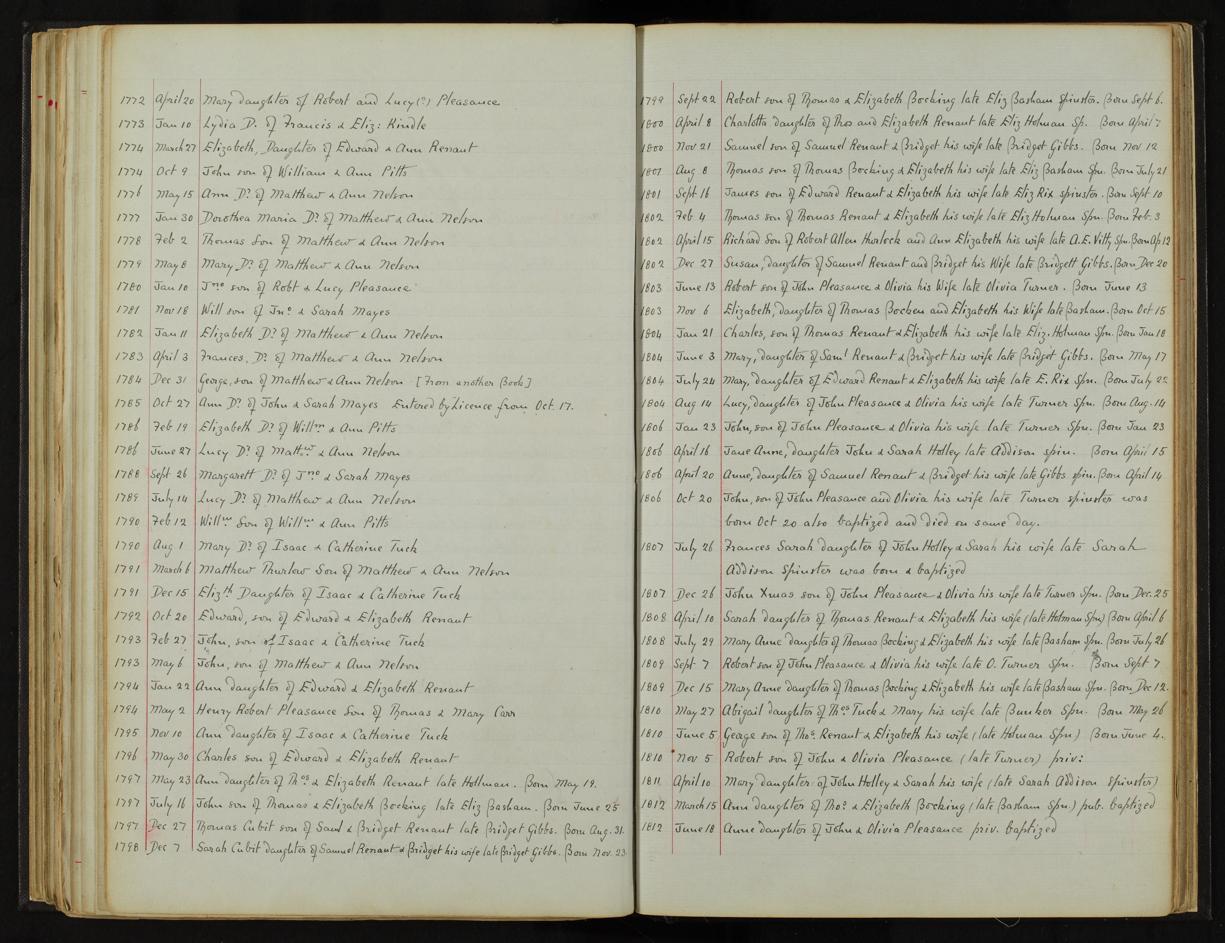 1772 April 20 Mary daughter of Robert and Lucy(?) Pleasance
1773 Jan 10 Lydia Dr. of Francis & Eliz: Kindle
1774 March 27 Elizabeth, Daughter of Edward & Ann Renant
1774 Oct 9 John son of William & Ann Pitts
1776 May 15 Ann Dr. of Matthew & Ann Nelson
1777 Jan 30 Dorothea Maria Dr. of Matthew & Ann Nelson
1778 Feb 2 Thomas Son of Matthew & Ann Nelson
1779 May 8 Mary Dr. of Matthew & Ann Nelson
1780 Jan 10 Jno son of Robt & Lucy Pleasance
1781 Nov 18 Will son of Jno. & Sarah Mayes
1782 Jan 11 Elizabeth Dr. of Matthew & Ann Nelson
1783 April 3 Frances, Dr. of Matthew & Ann Nelson
1784 Dec 31 George, son of Matthew & Ann Nelson [From another Book]
1785 Oct 27 Ann Dr. of John & Sarah Mayes Entered by Licence from Oct. 17.
1786 Feb 19 Elizabeth Dr. of Willm & Ann Pitts
1786 June 27 Lucy Dr. of Mattw & Ann Nelson
1788 Sept 26 Margarett Dr. of Jno & Sarah Mayes
1789 July 14 Lucy Dr. of Matthew & Ann Nelson
1790 Feb 12 Willm Son of Willm & Ann Pitts
1790 Aug 1 Mary Dr. of Isaac & Catherine Tuck
1791 March 6 Matthew Thurlow Son of Matthew & Ann Nelson
1791 Dec 15 Elizth Daughter of Isaac & Catherine Tuck
1792 Oct 20 Edward, son of Edward & Elizabeth Renant
1793 Feb 27 John, son of Isaac & Catherine Tuck
1793 May 6 John, son of Matthew & Ann Nelson
1794 Jan 22 Ann daughter of Edward & Elizabeth Renant
1794 May 2 Henry Robert Pleasance Son of Thomas & Mary Carr
1795 Nov 10 Ann daughter of Isaac & Catherine Tuck
1796 May 30 Charles son of Edward & Elizabeth Renant
1797 May 23 Ann daughter of Thos & Elizabeth Renant late Hollman. Born May 19.
1797 July 16 John son of Thomas & Elizabeth Bocking late Eliz Basham. Born June 25
1797 Dec 27 Thomas Cubit son of Saml & Bridget Renant late Bridget Gibbs. Born Aug. 31.
1798 Dec 7 Sarah Cubit daughter of Samuel Renant & Bridget his wife late Bridget Gibbs. Born Nov. 23
1799 Sept 22 Robert son of Thomas & Elizabeth Bocking late Eliz Basham spinster. Born Sept 6.
1800 April 8 Charlotta daughter of Thos and Elizabeth Renant late Eliz Holman Sp. Born April 7
1800 Nov 21 Samuel son of Samuel Renant & Bridget his wife late Bridget Gibbs. Born Nov 12
1801 Aug 8 Thomas son of Thomas Bocking & Elizabeth his wife late Eliz Basham Spn. Born July 21
1801 Sept 16 James son of Edward Renant & Elizabeth his wife late Eliz Rix spinster. Born Sept 10
1802 Feb 4 Thomas son of Thomas Renant & Elizabeth his wife late Eliz Holman Spn. Born Feb. 3
1802 April 15 Richard Son of Robert Allen Hurlock and Ann Elizabeth his wife late A.E. Vitty Spn. Born Ap 12
1802 Dec 27 Susan, daughter of Samuel Renant and Bridget his Wife late Bridgett Gibbs. Born Dec 20
1803 June 13 Robert son of John Pleasance & Olivia his Wife late Olivia Turner. Born June 13
1803 Nov 6 Elizabeth, daughter of Thomas Bocken and Elizabeth his Wife late Basham. Born Oct 15
1804 Jan 21 Charles, son of Thomas Renant & Elizabeth his wife late Eliz. Holman Spn. Born Jan 18
1804 June 3 Mary, daughter of Saml Renant & Bridget his wife late Bridget Gibbs. Born May 17
1804 July 24 Mary, daughter of Edward Renant & Elizabeth his wife late E. Rix Spn. Born July 22
1804 Aug 14 Lucy, daughter of John Pleasance & Olivia his wife late Turner Spn. Born Aug. 14
1806 Jan 23 John, son of John Pleasance & Olivia his wife late Turner Spn. Born Jan 23
1806 April 16 Jane Anne, daughter John & Sarah Holley late Addison spin. Born April 15
1806 April 20 Anne, daughter of Samuel Renant & Bridget his wife late Gibbs spin. Born April 14
1806 Oct 20 John, son of John Pleasance and Olivia his wife late Turner spinster was
born Oct 20 also baptized and died on same day.
1807 July 26 Frances Sarah daughter of John Holley & Sarah his wife late Sarah
Addison Spinster was born & baptized
1807 Dec 26 John Xmas son of John Pleasance & Olivia his wife late Turner Spn. Born Dec. 25
1808 April 10 Sarah daughter of Thomas Renant & Elizabeth his wife (late Holman Spn) Born April 6
1808 July 29 Mary Anne daughter of Thomas Bocking & Elizabeth his wife late Basham Spn. Born July 26
1809 Sept. 7 Robert son of John Pleasance & Olivia his wife late O. Turner Spn. Born Sept 7
1809 Dec 15 Mary Anne daughter of Thomas Bocking & Elizabeth his wife late Basham Spn. Born Dec 12.
1810 May 27 Abigail daughter of Thos Tuck & Mary his wife late Bunker Spn. Born May 26
1810 June 5 George son of Thos. Renant & Elizabeth his wife (late Holman Spn) Born June 4.
1810 Nov 5 Robert son of John & Olivia Pleasance (late Turner) priv:
1811 April 10 Mary daughter of John Holley & Sarah his wife (late Sarah Addison Spinster)
1812 March 15 Ann daughter of Tho. & Elizabeth Bocking (late Basham Spn) pub. baptized
1812 June 18 Anne daughter of John & Olivia Pleasance priv. baptized